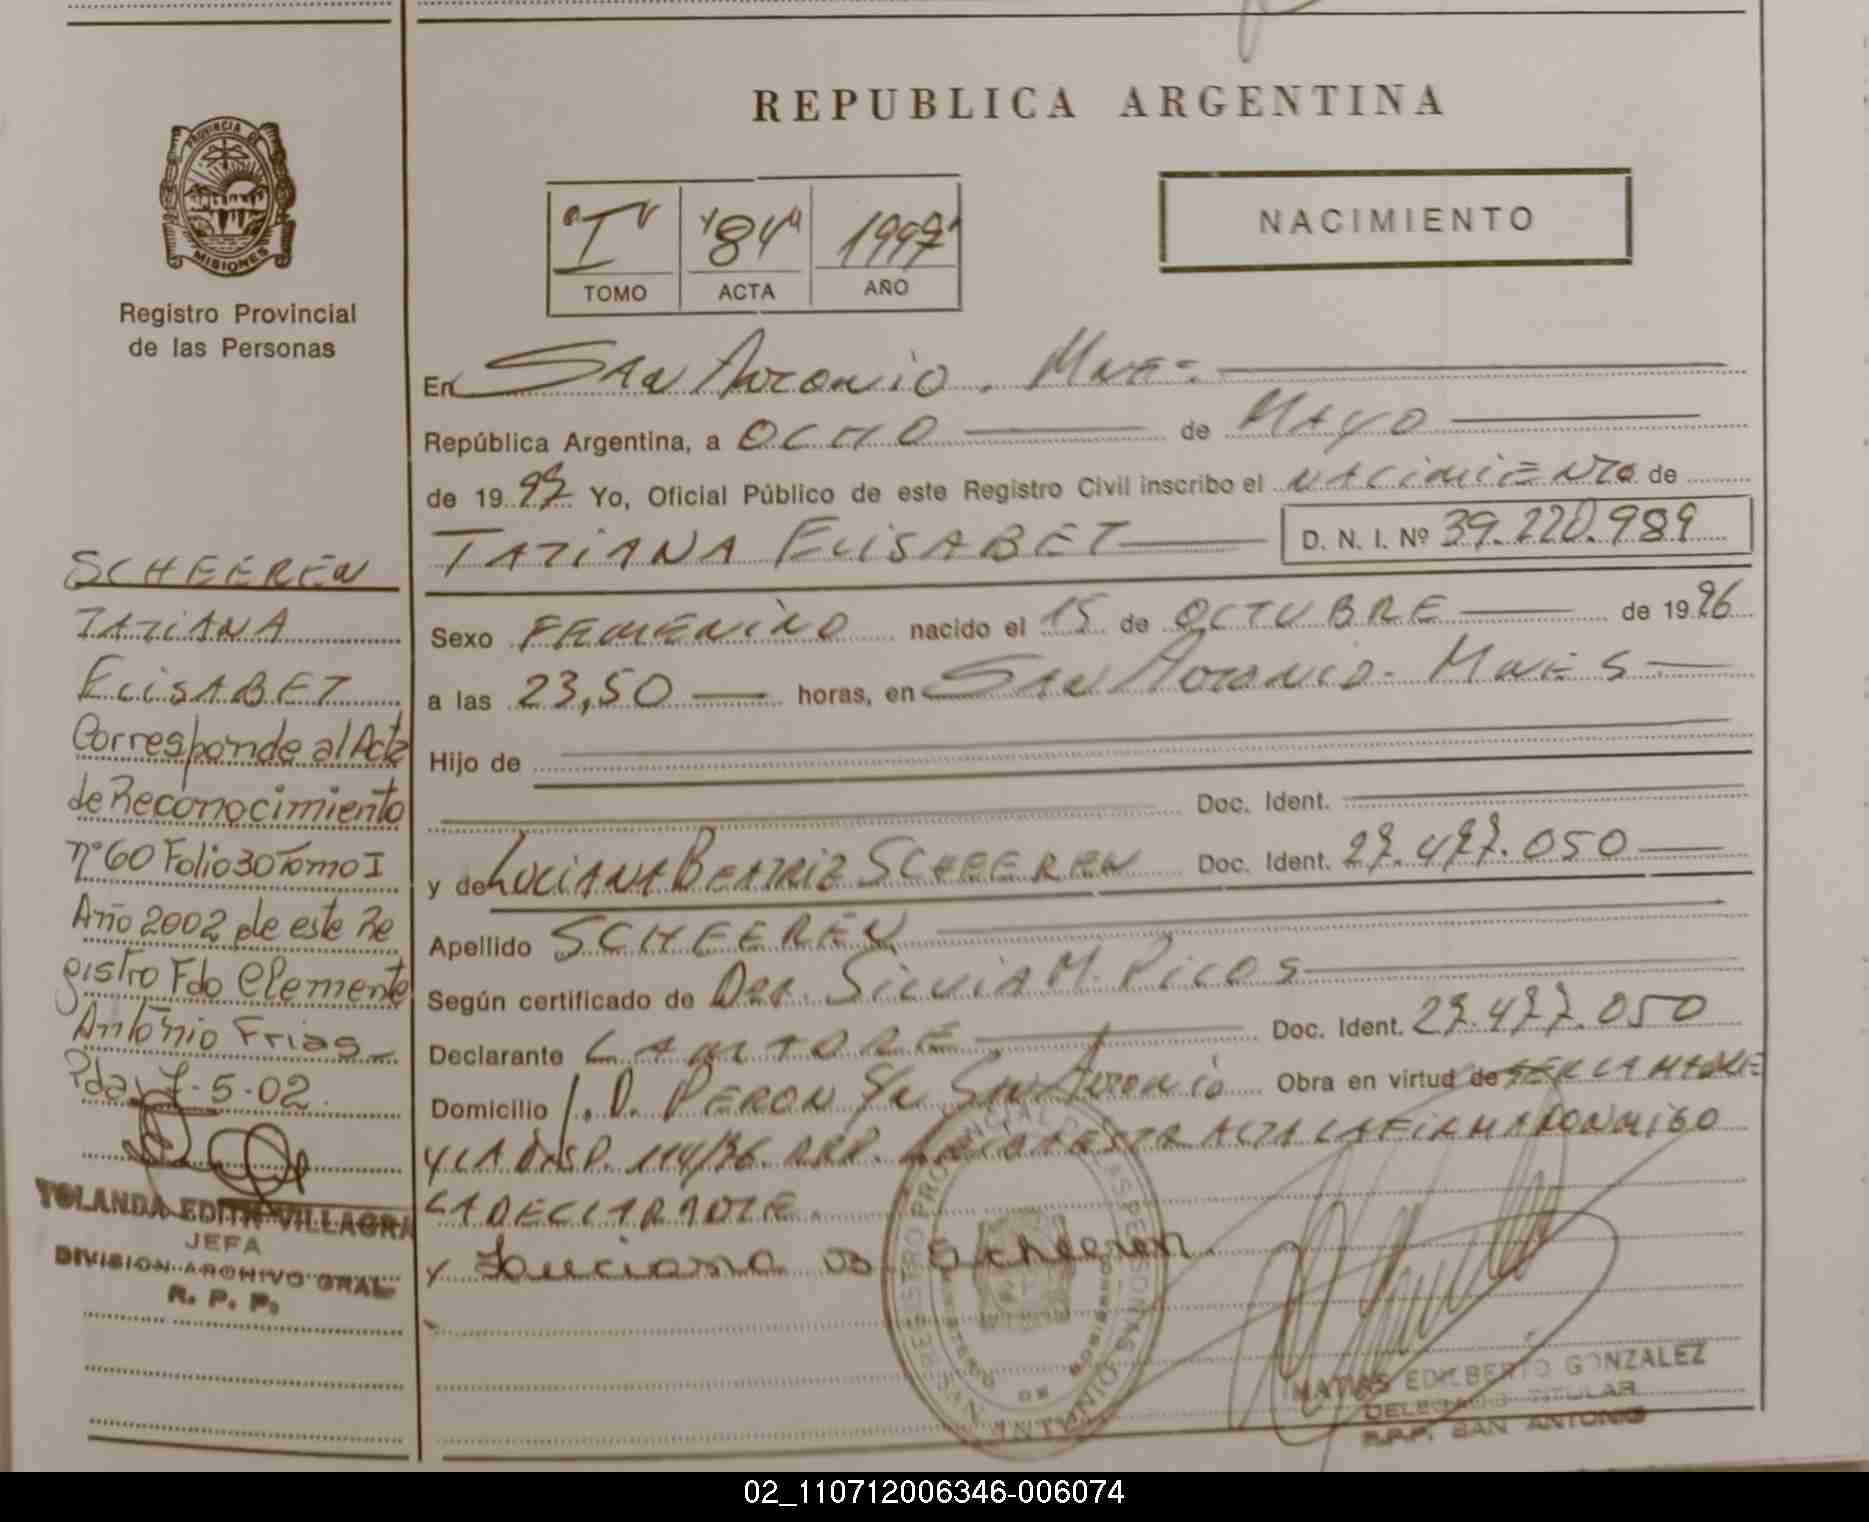 REPUBLICA ARGENTINA
PROVINCIA DE
MISIONES
Registro Provincial
de las Personas
"I" "84" 1997
TOMO ACTA AÑO
NACIMIENTO
En San Antonio. Mnes.
República Argentina, a OCHO de MAYO
de 1997 Yo, Oficial Público de este Registro Civil inscribo el NACIMIENTO de
TATIANA ELISABET D. N. I. Nº 39.220.989
Sexo FEMENINO nacido el 15 de OCTUBRE de 1996
a las 23,50 horas, en San Antonio - Mnes
Hijo de
Doc. Ident.
y de LUCIANA BEATRIZ SCHEEREN Doc. Ident. 27.477.050
Apellido SCHEEREN
Según certificado de Silvia M. Picos
Declarante LA MADRE Doc. Ident. 27.477.050
Domicilio J. D. PERON S/N San Antonio Obra en virtud de SER LA MADRE
Y LA DISP. 114/96. ESTA ACTA LA FIRMA CONMIGO
LA DECLARANTE.
Luciana B. Scheeren.
SCHEEREN
TATIANA
ELISABET
Corresponde al Acta
de Reconocimiento
nº 60 Folio 30 Tomo I
Año 2002 de este Re
gistro Fdo Clemente
Antonio Frias
Pdas 7-5-02
YOLANDA EDITH VILLAGRA
JEFA
DIVISION ARCHIVO GRAL
R. P. P.
REGISTRO PROVINCIAL DE LAS PERSONAS
SAN ANTONIO
MISIONES
MATIAS EDILBERTO GONZALEZ
DELEGADO TITULAR
R.P.P. SAN ANTONIO
02_110712006346-006074